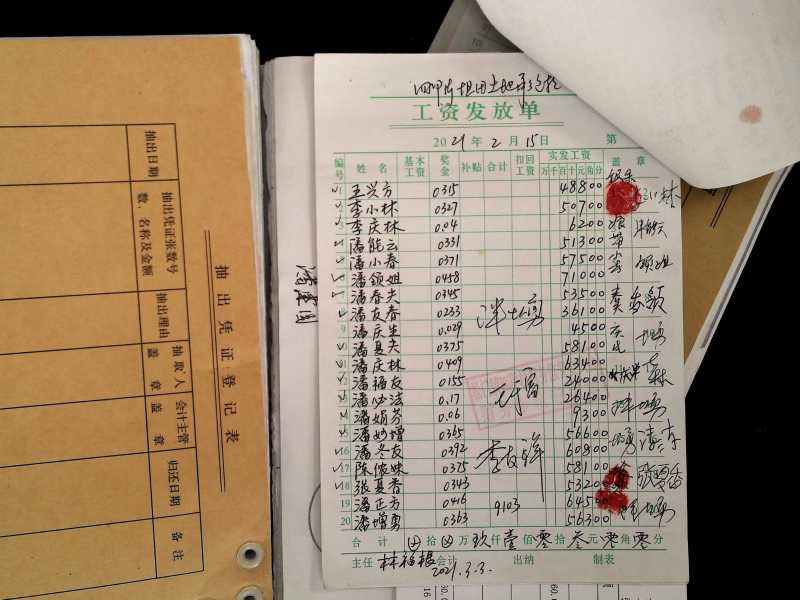 抽出凭证登记表
抽出日期
抽出凭证张数号
数、名称及金额
抽出理由
抽取人
盖章
会计主管
盖章
归还日期
备注
工资发放单
2021年2月15日 第
编号 姓名 基本工资 奖金 补贴 合计 扣回工资 实发工资 盖章
万千百十元角分
1 王兴方 0315 48800
2 李小林 0327 50700
3 李庆林 0.04 6200
4 潘能云 0331 51300
5 潘小春 0371 57500
6 潘领姐 0458 71000
7 潘春夫 0345 53500
8 潘友春 0233 36100
9 潘庆生 0.029 4500
10 潘夏夫 0375 58100
11 潘庆林 0409 63400
12 潘福友 0155 24000
13 潘必法 0.17 26400
14 潘娟芬 0.06 9300
15 潘妙增 0365 56600
16 潘冬友 0392 60800
17 陈依妹 0375 58100
18 张夏香 0343 53200
19 潘正方 0416 9103 64500
20 潘增勇 0363 56300
合计 拾 万玖仟壹佰零拾叁元零角零分
主任 林福根 会计 出纳 制表
2021.3.3.